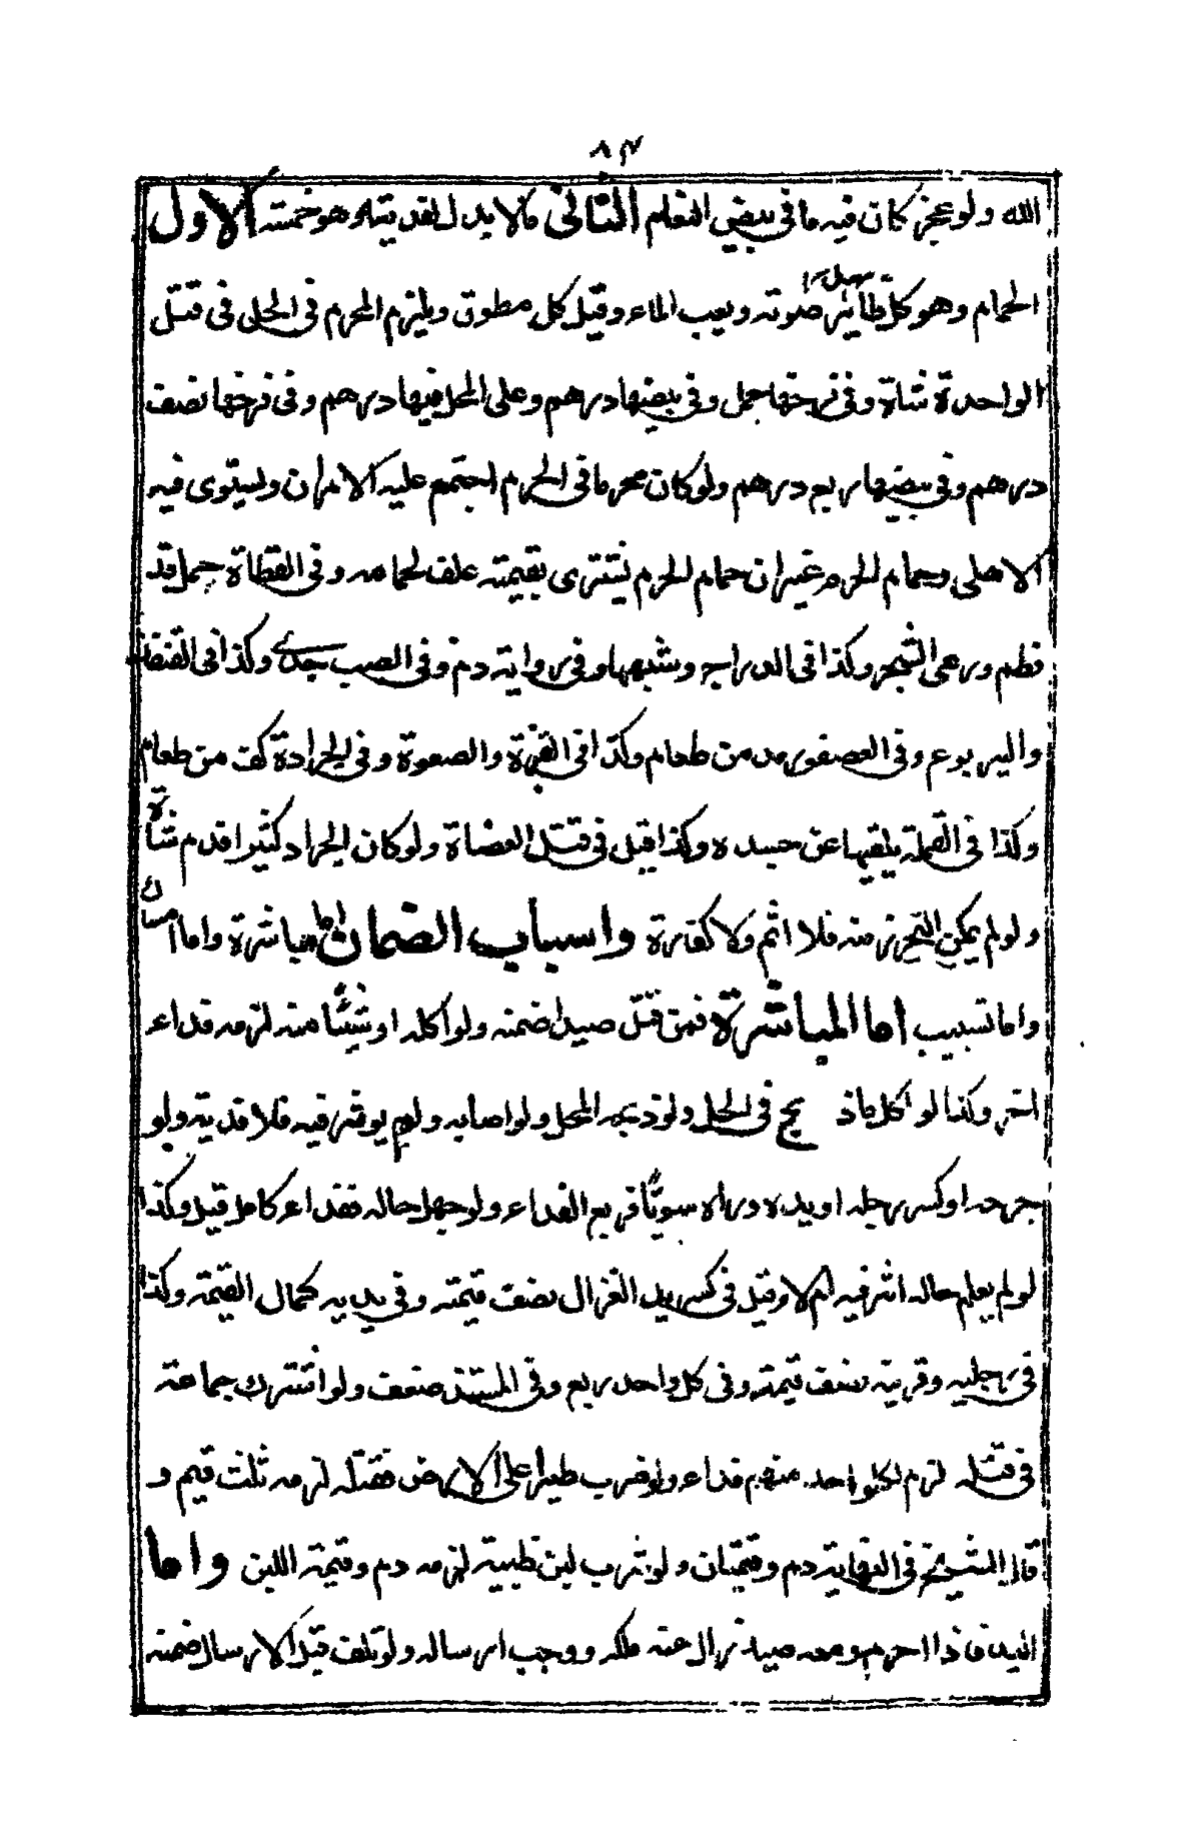 ٨٣
الله ولو عجز كان فيه ما في بيض النعام الثاني مالا بدل لفديته وهو خمسة الاول
الحمام وهو كل طائر يهدل صوته ويعب الماء وقيل كل مطوق ويلزم المحرم في الحل في قتل
الواحدة شاة وفي فرخها حمل وفي بيضها درهم وعلى المحل فيها درهم وفي فرخها نصف
درهم وفي بيضها ربع درهم ولو كان محرما في الحرم اجتمع عليه الامران ويستوى فيه
الاهلى وحمام الحرم غير ان حمام الحرم يشترى بقيمته علف لحمامه وفي القطاة حمل قد
فطم ورعى الشجر وكذا في الدراج وشبهها وفي رواية دم وفي الضب جدى وكذا في القنفذ
واليربوع وفي العصفور مد من طعام وكذا في القبرة والصعوة وفي الجرادة كف من طعام
وكذا في القملة يلقيها عن جسده وكذا قيل في قتل العضاة ولو كان الجراد كثيرا قدم شاة
ولو لم يمكن التحرز منه فلا اثم ولا كفارة واسباب الضمان اما مباشرة واما امساك
واما تسبيب اما المباشرة فمن قتل صيدا ضمنه ولو اكله او شيئا منه لزمه فداء
اخر وكذا لو اكل ما ذبح في الحل ولو ذبحه المحل ولو اصابه ولم يوثر فيه فلا فدية ولو
جرحه او كسر رجله او يده ورآه سويّا فربع الفداء ولو جهل حاله ففداء كامل قيل وكذا
لو لم يعلم حاله اثر فيه ام لا وقيل في كسر يد الغزال نصف قيمته وفي يديه كمال القيمة وكذا
في رجليه وقرنيه نصف قيمته وفي كل واحد ربع وفي المستند ضعف ولو اشترك جماعة
في قتله لزم لكل واحد منهم فداء ولو ضرب طيرا على الارض فقتله لزمه ثلث قيم و
قال الشيخ في النهاية دم وقيمتان ولو شرب لبن ظبية لزمه دم وقيمة اللبن واما
اليد فاذا احرم ومعه صيد زال عنه ملكه ووجب ارساله ولو تلف قبل الارسال ضمنه